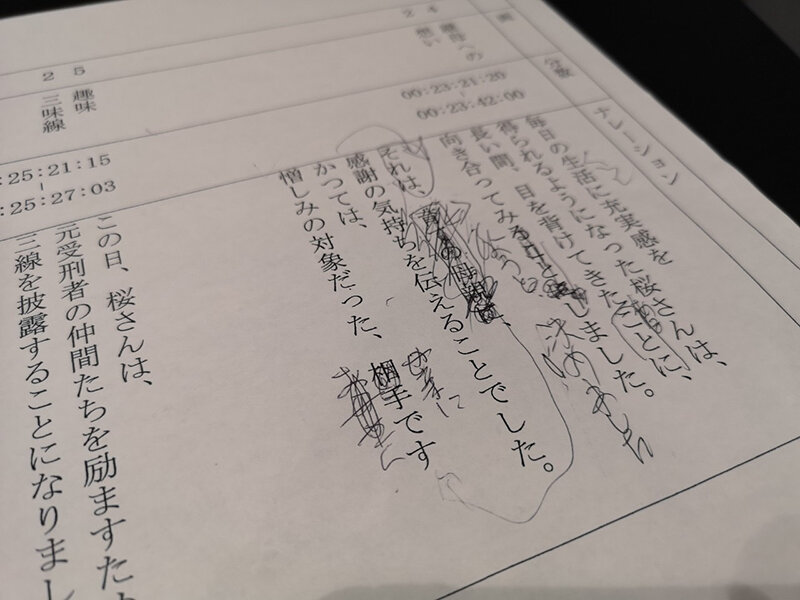 ナレーション
分数
24
への
想い
00:23:21:20
-
00:23:42:00
毎日の生活に充実感を
得られるようになった桜さんは、
長い間、目を背けてきたことに、
向き合ってみ
しました。
決めました
それは、
感謝の気持ちを伝えることでした。
かつては、
憎しみの対象だった、
相手です
お母さん
25 趣味
2 三味線
:25:21:15
-
:25:27:03
この日、桜さんは、
元受刑者の仲間たちを励ますため
三線を披露することになりまし